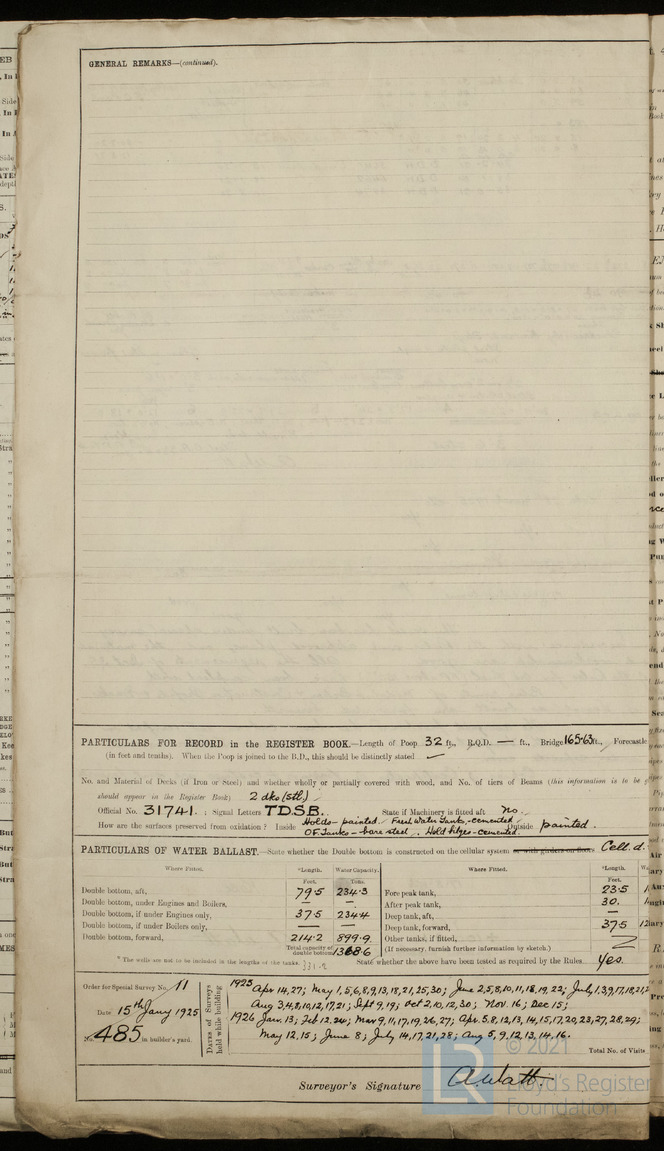 GENERAL REMARKS—(continued).
PARTICULARS FOR RECORD in the REGISTER BOOK.—Length of Poop 32 ft., R.Q.D. — ft., Bridge 165.63 ft., Forecastle
(in feet and tenths). When the Poop is joined to the B.D., this should be distinctly stated
No. and Material of Decks (if Iron or Steel) and whether wholly or partially covered with wood, and No. of tiers of Beams (this information is to be
should appear in the Register Book) 2 dks (stl)
Official No. 31741. ; Signal Letters T.D.S.B. State if Machinery is fitted aft no.
How are the surfaces preserved from oxidation? Inside Holds - painted. Fresh Water Tanks, - cemented. Outside painted.
O.F. Tanks - bare steel. Hold bilges - cemented.
PARTICULARS OF WATER BALLAST.—State whether the Double bottom is constructed on the cellular system or with girders on floors Cell d.
Where Fitted. *Length. Water Capacity. Where Fitted. *Length.
Feet. Tons. Feet.
Double bottom, aft, 79.5 234.3 Fore peak tank, 23.5
Double bottom, under Engines and Boilers, — — After peak tank, 30.
Double bottom, if under Engines only, 37.5 234.4 Deep tank, aft, —
Double bottom, if under Boilers only, — — Deep tank, forward, 37.5
Double bottom, forward, 214.2 899.9 Other tanks, if fitted,
Total capacity of double bottom 1368.6 (If necessary, furnish further information by sketch.)
* The wells are not to be included in the lengths of the tanks. 331.2 State whether the above have been tested as required by the Rules Yes.
Order for Special Survey No. 11
Date 15th Jany 1925
No. 485 in builder's yard.
Dates of Surveys held while building
1925 Apr 14,27; May 1,5,6,8,9,13,18,21,25,30; June 2,5,8,10,11,18,19,22; July 1,3,9,17,18,21,
Aug 3,4,8,10,12,17,21; Sept 9,19; Oct 2,10,12,30; Nov. 16; Dec 15;
1926 Jan. 13; Feb 12.24; Mar 9,11,17,19,26,27; Apr. 5.8,12,13,14,15,17,20,23,27,28,29;
May 12,15; June 8; July 14,17,21,28; Aug 5,9,12,13,14,16.
Total No. of Visits
Surveyor's Signature A. Watt.
© 2021
LR
Lloyd's Register
Foundation